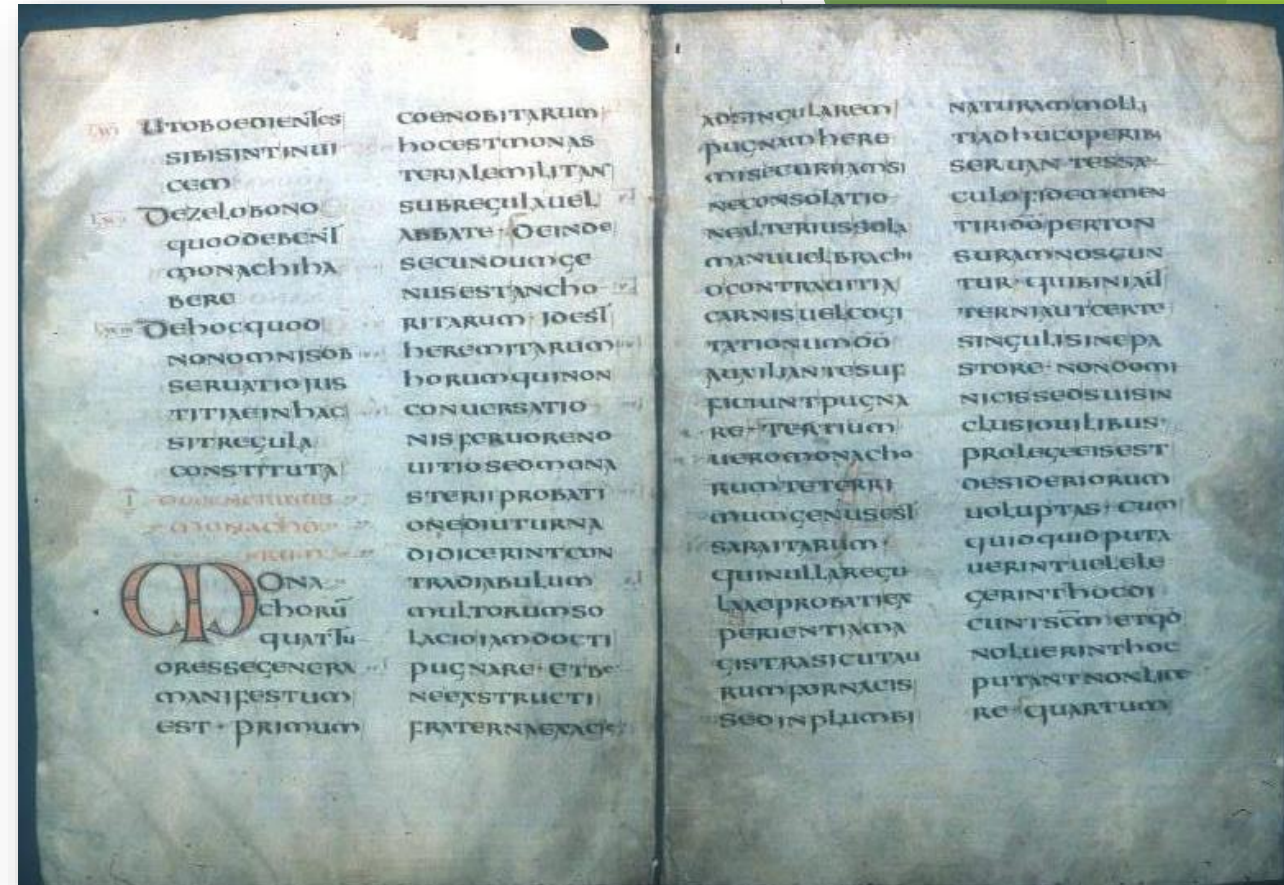 UTOBOEDIENTES
SIBISINTINUI
CEM
DEZELOBONO
QUODDEBENT
MONACHIHA
BERE
DEHOCQUOD
NONOMNISOB
SERUATIOIUS
TITIAEINHAC
SITREGULA
CONSTITUTA
MONACHO
RUM
MONA
CHORŪ
QUATTU
ORESSEGENERA
MANIFESTUM
EST · PRIMUM
COENOBITARUM
HOCESTMONAS
TERIALEMILITANS
SUBREGULAUEL
ABBATE · DEINDE
SECUNDUMGE
NUSESTANCHO
RITARUM · IDEST
HEREMITARUM
HORUMQUINON
CONUERSATIO
NISFERUORENO
UITIOSEDMONA
STERIIPROBATI
ONEDIUTURNA
DIDICERINTCON
TRADIABULUM
MULTORUMSO
LACIOIAMDOCTI
PUGNARE · ETBE
NEEXSTRUCTI
FRATERNAEXACIE
ADSINGULAREM
PUGNAMHERE
MISECURIIAMSI
NECONSOLATIO
NEALTERIUSSOLA
MANUUELBRACHI
OCONTRAUITIA
CARNISUELCOGI
TATIONUMD̄Ō
AUXILIANTESUF
FICIUNTPUGNA
RE · TERTIUM
UEROMONACHO
RUMTETERRI
MUMGENUSEST
SARAITARUM ·
QUINULLAREGU
LAAPROBATIEX
PERIENTIAMA
GISTRASICUTAU
RUMFORNACIS
SEDINPLUMBI
NATURAMMOLLI
TIADHUCOPERIB
SERUANTESSAE
CULOFIDEMMEN
TIRID̄ŌPERTON
SURAMNOSCUN
TUR · QUIBINIAUT
TERNIAUTCERTE
SINGULISINEPA
STORE · NONDOMI
NICISSEDSUISIN
CLUSIOUILIBUS ·
PROLEGEEISEST
DESIDERIORUM
UOLUPTAS · CUM
QUIDQUIDPUTA
UERINTUELELE
GERINTHOCDI
CUNTSC̄M̄ETQD̄
NOLUERINTHOC
PUTANTNONLICE
RE · QUARTUM